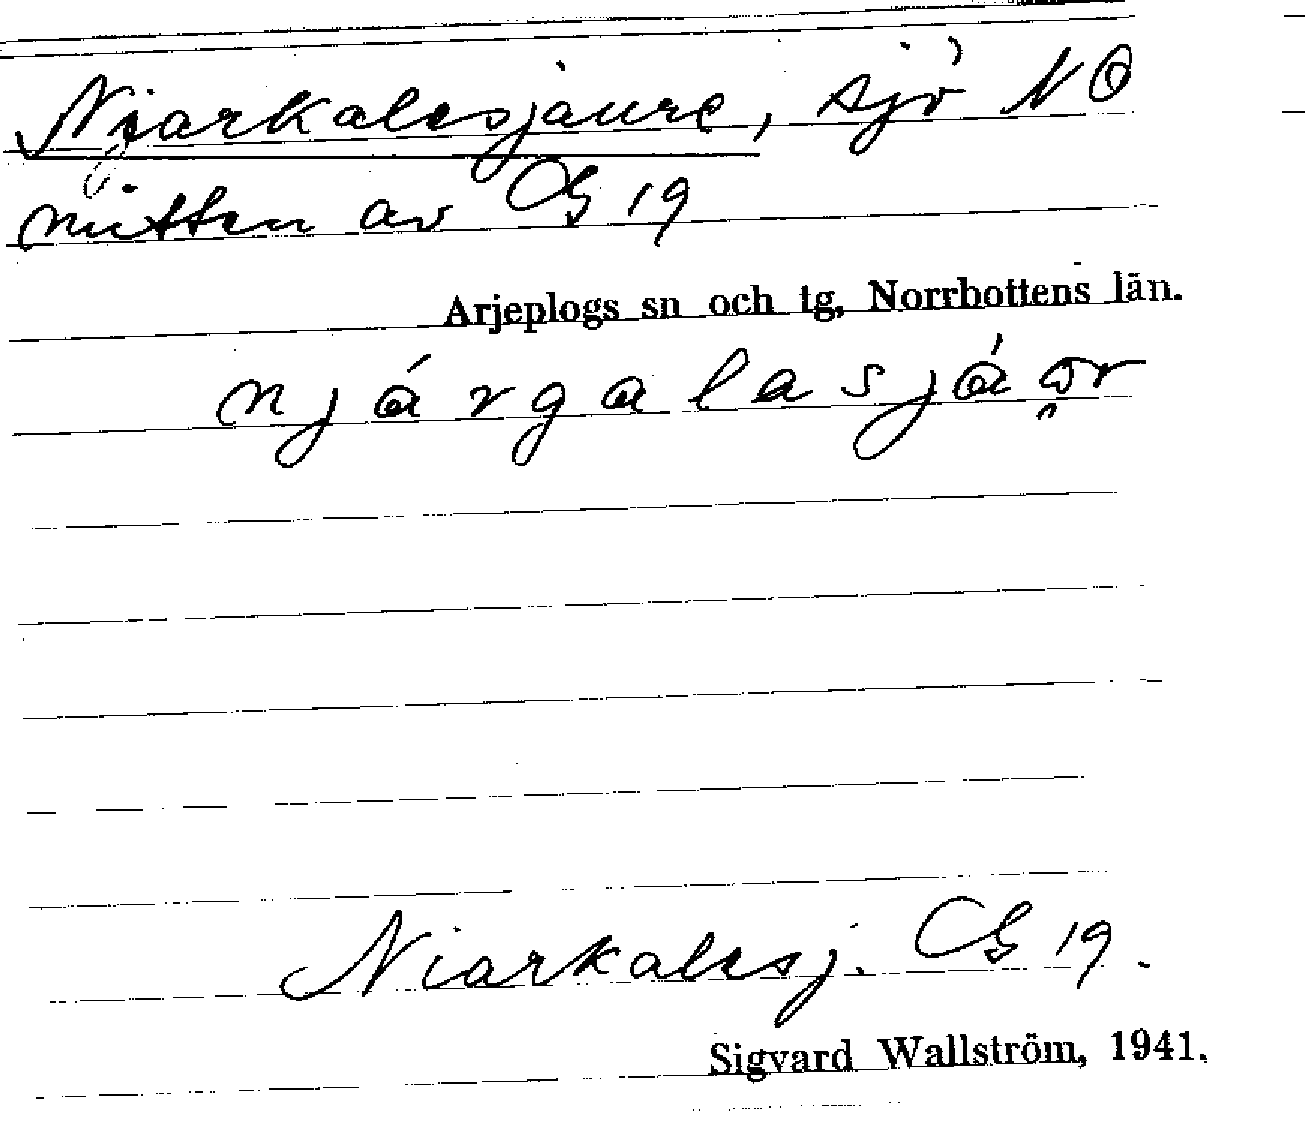 Njarkalesjaure, sjö NO
mitten av GS 19
Arjeplogs sn och tg, Norrbottens län.
njárgalasjáo̯r
Niarkalesj. GS 19.
Sigvard Wallström, 1941.